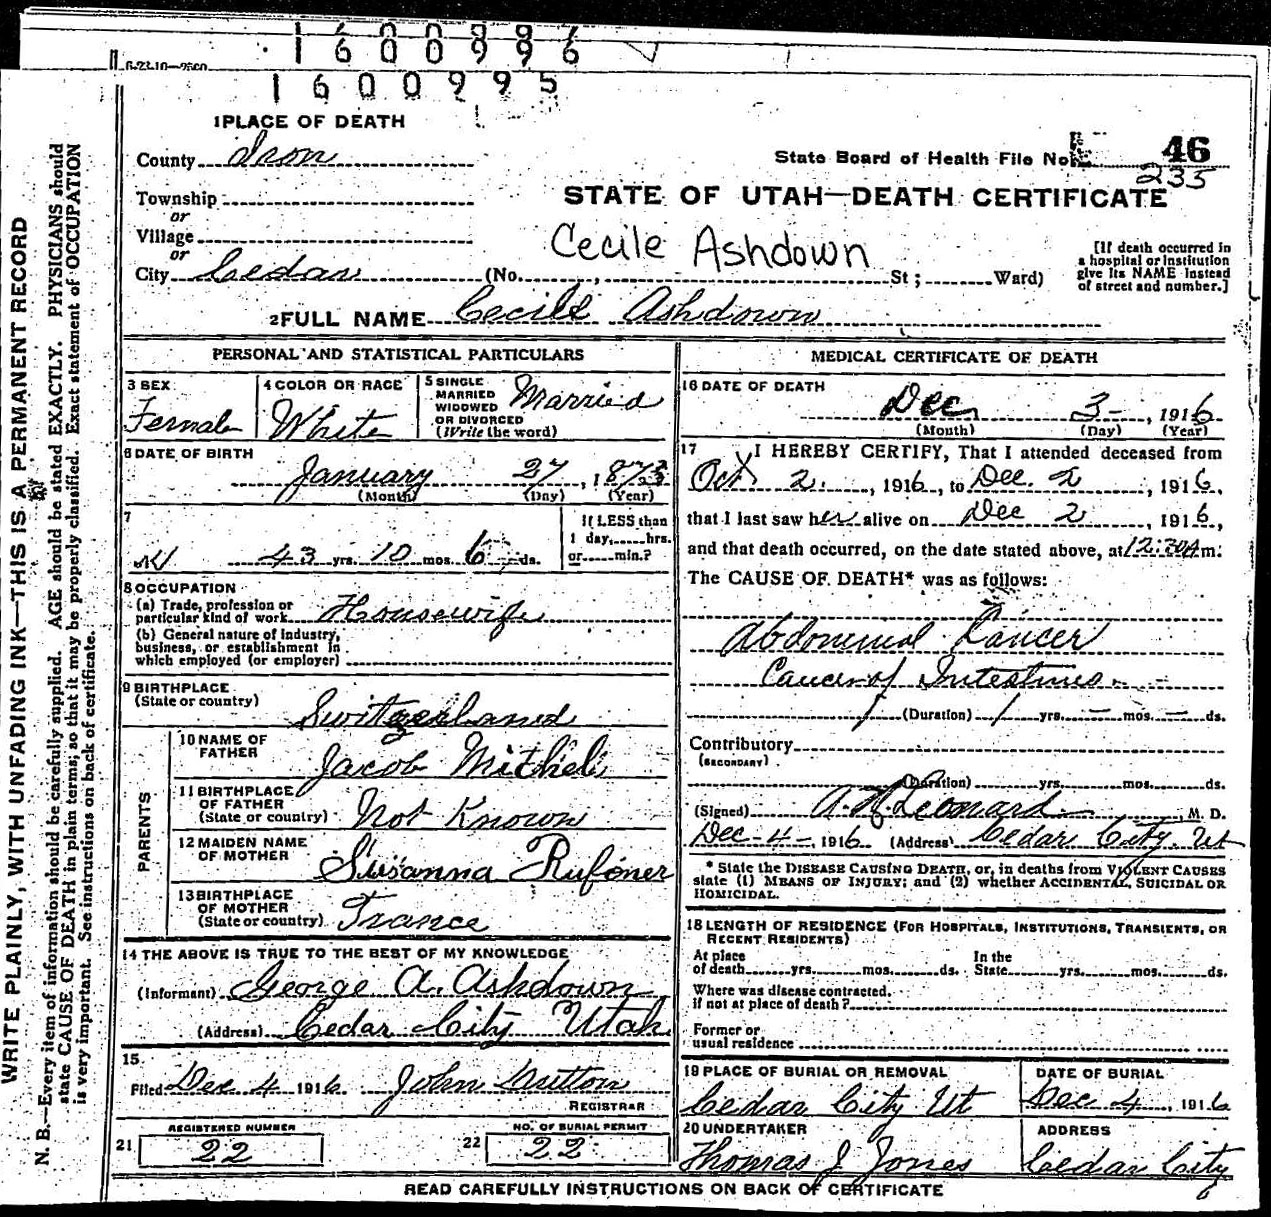 1600996
1600995
1 PLACE OF DEATH
County Iron
State Board of Health File No. 46
235
Township
or
Village
or
City Cedar (No. , St ; Ward)
STATE OF UTAH—DEATH CERTIFICATE
Cecile Ashdown
[If death occurred in
a hospital or institution
give its NAME instead
of street and number.]
2 FULL NAME Cecile Ashdown
PERSONAL AND STATISTICAL PARTICULARS
3 SEX
Female
4 COLOR OR RACE
White
5 SINGLE
MARRIED
WIDOWED
OR DIVORCED
(Write the word)
Married
6 DATE OF BIRTH
January 27, 1873
(Month) (Day) (Year)
7
43 yrs. 10 mos. 6 ds.
If LESS than
1 day, hrs.
or min.?
8 OCCUPATION
(a) Trade, profession or
particular kind of work Housewife
(b) General nature of industry,
business, or establishment in
which employed (or employer)
9 BIRTHPLACE
(State or country)
Switzerland
PARENTS
10 NAME OF
FATHER
Jacob Micheli
11 BIRTHPLACE
OF FATHER
(State or country)
Not Known
12 MAIDEN NAME
OF MOTHER
Susanna Rufener
13 BIRTHPLACE
OF MOTHER
(State or country) France
14 THE ABOVE IS TRUE TO THE BEST OF MY KNOWLEDGE
(Informant) George A. Ashdown
(Address) Cedar City Utah
15
Filed Dec 4 1916 John
REGISTRAR
REGISTERED NUMBER
21 22
NO. OF BURIAL PERMIT
22 22
MEDICAL CERTIFICATE OF DEATH
16 DATE OF DEATH
Dec 3, 1916
(Month) (Day) (Year)
17 I HEREBY CERTIFY, That I attended deceased from
Oct 2., 1916, to Dec. 2, 1916,
that I last saw her alive on Dec 2, 1916,
and that death occurred, on the date stated above, at 12:30 A m.
The CAUSE OF DEATH* was as follows:
Abdominal Cancer
Cancer of Intestines
(Duration) 1 yrs. — mos. — ds.
Contributory
(SECONDARY)
(Duration) yrs. mos. ds.
(Signed) A. N. Leonard, M. D.
Dec 4 1916 (Address) Cedar City. Ut
* State the DISEASE CAUSING DEATH, or, in deaths from VIOLENT CAUSES
state (1) MEANS OF INJURY; and (2) whether ACCIDENTAL, SUICIDAL OR
HOMICIDAL.
18 LENGTH OF RESIDENCE (FOR HOSPITALS, INSTITUTIONS, TRANSIENTS, OR
RECENT RESIDENTS)
At place
of death yrs. mos. ds.
In the
State yrs. mos. ds.
Where was disease contracted,
if not at place of death?
Former or
usual residence
19 PLACE OF BURIAL OR REMOVAL
Cedar City Ut
DATE OF BURIAL
Dec 4, 1916
20 UNDERTAKER
Thomas J Jones
ADDRESS
Cedar City
READ CAREFULLY INSTRUCTIONS ON BACK OF CERTIFICATE
WRITE PLAINLY, WITH UNFADING INK—THIS IS A PERMANENT RECORD
N. B.—Every item of information should be carefully supplied. AGE should be stated EXACTLY. PHYSICIANS should
state CAUSE OF DEATH in plain terms, so that it may be properly classified. Exact statement of OCCUPATION
is very important. See instructions on back of certificate.